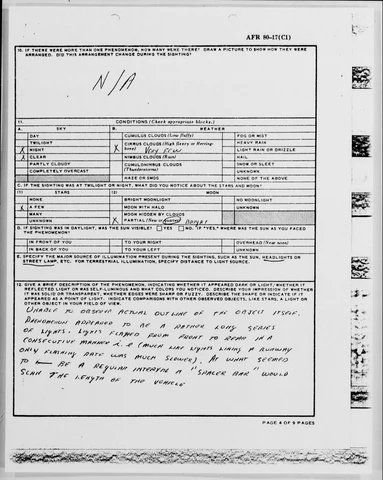 AFR 80-17(C1)
10. IF THERE WERE MORE THAN ONE PHENOMENON, HOW MANY WERE THERE? DRAW A PICTURE TO SHOW HOW THEY WERE
ARRANGED. DID THIS ARRANGEMENT CHANGE DURING THE SIGHTING?
N/A
11. CONDITIONS (Check appropriate blocks.)
A. SKY B. WEATHER
DAY CUMULUS CLOUDS (Low fluffy) FOG OR MIST
TWILIGHT X CIRRUS CLOUDS (High fleecy or Herring- HEAVY RAIN
X NIGHT bone) VERY FEW LIGHT RAIN OR DRIZZLE
X CLEAR NIMBUS CLOUDS (Rain) HAIL
PARTLY CLOUDY CUMULONIMBUS CLOUDS SNOW OR SLEET
COMPLETELY OVERCAST (Thunderstorms) UNKNOWN
HAZE OR SMOG NONE OF THE ABOVE
C. IF THE SIGHTING WAS AT TWILIGHT OR NIGHT, WHAT DID YOU NOTICE ABOUT THE STARS AND MOON?
(1) STARS (2) MOON
NONE BRIGHT MOONLIGHT NO MOONLIGHT
X A FEW MOON WITH HALO UNKNOWN
MANY MOON HIDDEN BY CLOUDS
UNKNOWN X PARTIAL (New or quarter)
D. IF SIGHTING WAS IN DAYLIGHT, WAS THE SUN VISIBLE? YES NO. IF "YES," WHERE WAS THE SUN AS YOU FACED
THE PHENOMENON?
IN FRONT OF YOU TO YOUR RIGHT OVERHEAD (Near noon)
IN BACK OF YOU TO YOUR LEFT UNKNOWN
E. SPECIFY THE MAJOR SOURCE OF ILLUMINATION PRESENT DURING THE SIGHTING, SUCH AS THE SUN, HEADLIGHTS OR
STREET LAMP, ETC. FOR TERRESTRIAL ILLUMINATION, SPECIFY DISTANCE TO LIGHT SOURCE.
12. GIVE A BRIEF DESCRIPTION OF THE PHENOMENON, INDICATING WHETHER IT APPEARED DARK OR LIGHT, WHETHER IT
REFLECTED LIGHT OR WAS SELF-LUMINOUS AND WHAT COLORS YOU NOTICED. DESCRIBE YOUR IMPRESSION OF WHETHER
IT WAS SOLID OR TRANSPARENT, WHETHER EDGES WERE SHARP OR FUZZY. DESCRIBE THE SHAPE OR INDICATE IF IT
APPEARED AS A POINT OF LIGHT. INDICATE COMPARISONS WITH OTHER OBSERVED OBJECTS, LIKE STARS, A LIGHT OR
OTHER OBJECT IN YOUR FIELD OF VIEW.
UNABLE TO OBSERVE ACTUAL OUTLINE OF THE OBJECT ITSELF.
PHENOMENON APPEARED TO BE A RATHER LONG SERIES
OF LIGHTS. LIGHTS FLASHED FROM FRONT TO REAR IN A
CONSECUTIVE MANNER (MUCH LIKE LIGHTS LINING A RUNWAY
ONLY FLASHING RATE WAS MUCH SLOWER). AT WHAT SEEMED
TO BE A REGULAR A "SPACER BAR" WOULD
SCAN THE LENGTH OF THE VEHICLE
PAGE 4 OF 9 PAGES